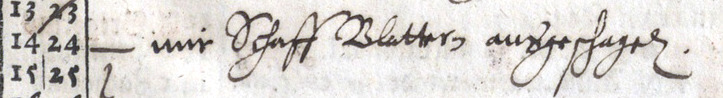 13 23
14 24 — mir Schaff Blattern außgeschagen.
15 25